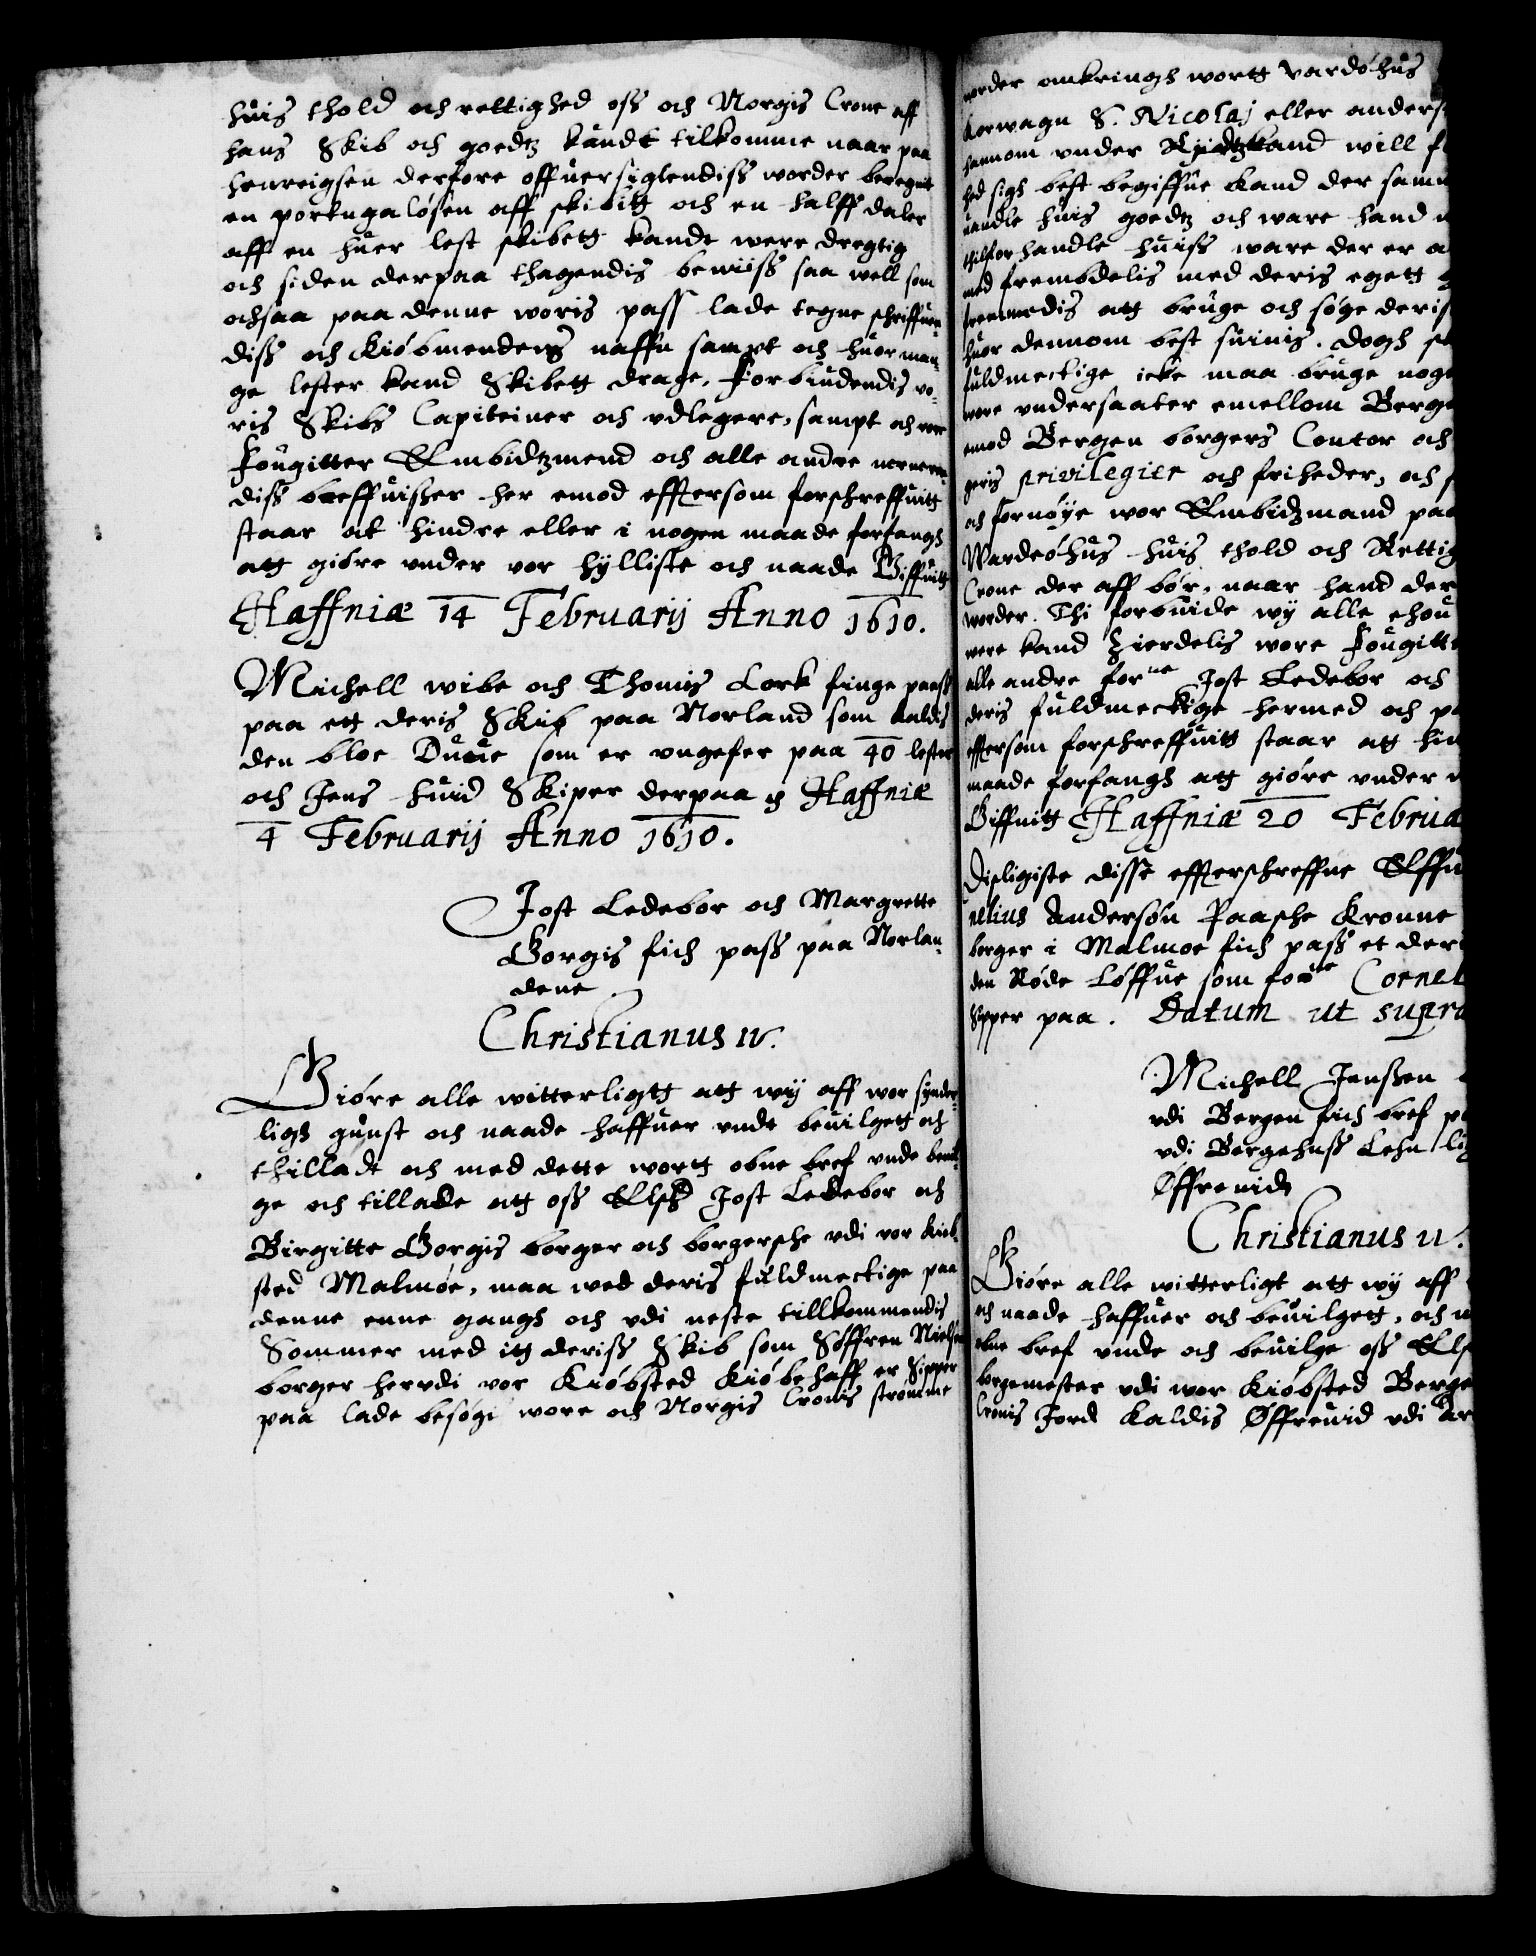 huis thold och rettighed oss och Norgis Crone aff
hans Skib och goedtz kandt tilkomme naar paa
henreigsen derfore offuersiglendiss worder beregnit
en portugaløsen aff skibitt och en halff daler
aff en huer lest skibett kandt were dregtig
och siden derpaa thagendis beuiiss saa well som
ochsaa paa denne woris pass lade tegne schriffuen-
diss och Kiöbmendens naffn sampt och huor man-
ge lester kand Skibett drage, Forbiudendis vo-
ris Skibs Capiteiner och vdlegere, sampt och vore
Fougitter Embidtzmend och alle andre neruerin-
diss breffuisser her emod efftersom forschreffuitt
staar at hindre eller i nogen maade forfangh
att giöre vnder vor hylliste och naade Giffuitt
Haffniæ 14 Februarij Anno 1610.
Michell wibe och Thomis Lork finge paass
paa ett deris Skib paa Norland som kaldis
den bloe Duue som er vngefer paa 40 lester
och Jens huid Skiper derpaa Haffniæ
4 Februarij Anno 1610.
Jost Ledebor och Margrette
Gorgis fich pass paa Norlan-
dene
Christianus IV.
Giöre alle witterligtt att wij aff wor synder-
ligh gunst och naade haffuer vnde beuilgett och
thilladt och med dette wortt obne bref vnde beuil-
ge och tillade att oss Elsch Jost Ledebor och
Birgitte Gorgis borger och borgersche vdi vor Kiöb-
sted Malmøe, maa wed deris fuldmectige paa
denne enne gangh och vdi neste tillkommendis
Sommer med itt deriss Skib som Söffren Nielsen
borger hervdi vor Kiöbsted Kiöbehaff er Sipper
paa lade besøgi wore och Norgis Cronis strömme
worder omkringh wortt Vardöhus
Korwagn S. Nicolaj eller anders
hannom vnder Rydtzland will f
hed sigh best begiffue kand der samm
handle huis goedtz och ware hand
thilforhandle huiss ware der er a
med frembdelis med deris egett
att bruge och søge deris
huor dennom best suinis. dogh
fuldmectige icke maa bruge noge
wore vndersaater emellom Berge
emod Bergen borgers Contor och
geris privilegier och friheder, och
och fornøye wor Embidzmand paa
Wardeöhus huis thold och Rettig
Crone der aff bør, naar hand der
worder. Thi forbiude wij alle ehou
were kand Zierdelis wore Fougitte
alle andre forne Jost Ledebor och
deris fuldmectige hermed och
efftersom forschreffuitt staar att hin
maade forfangh att giöre vnder
Giffuitt Haffniæ 20 Februa
Disligiste disse effterschreffne Elffu
nelius Andersön Paasche Kronne
borger i Malmoe fich pass et deri
den Røde Løffue som forne Cornel
Sipper paa. Datum ut supra
Michell Jenssen
vdi Bergen fich bref
vdi Bergehuss Lehn
Øffreuid
Christianus IV.
Giöre alle witterligt att wij aff
och naade haffuer och beuilgett, och
obne bref vnde och beuilge oss Els
borgemester vdi wor Kiöbsted Berge
Cronis Jord Kaldis Øffreuid vdi